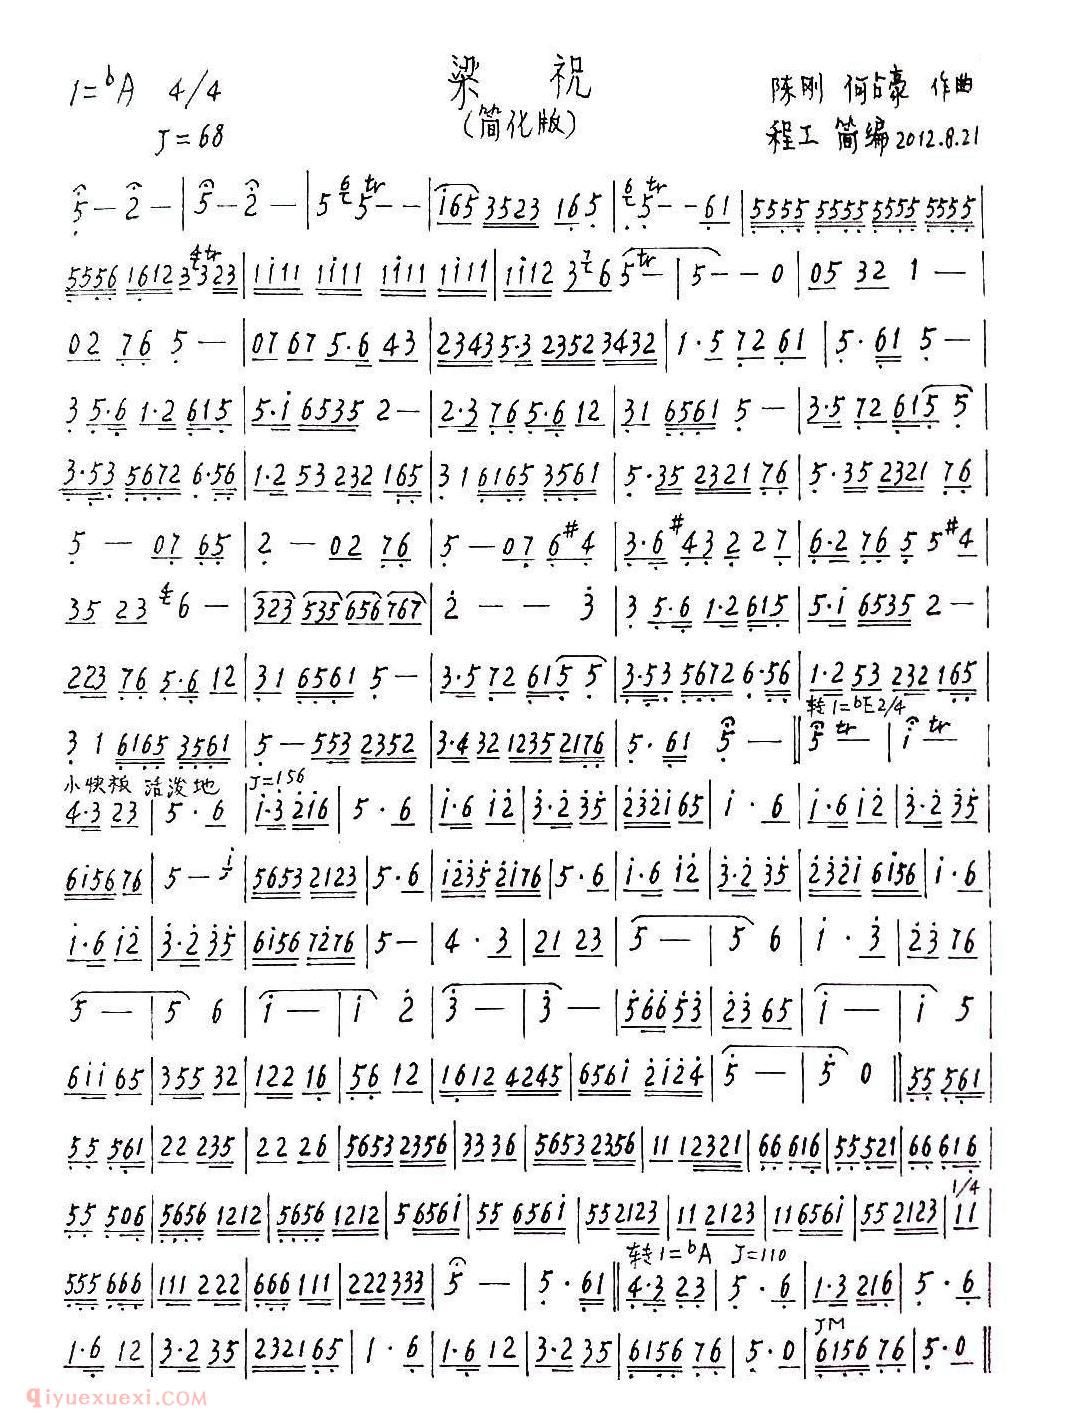 梁 祝
(简化版)
1=bA 4/4
J=68
陈刚 何占豪 作曲
程工 简编 2012.8.21
5 — 2 — | 5 — 2 — | 5 6 5 tr — — | i65 3523 165 | 6 5 tr — — 61 | 5555 5555 5555 5555 |
5556 1612 3 4 323 tr 23 | 1i11 1i11 1i11 1i11 | 1i12 3 7 6 5 tr — | 5 — — 0 | 05 32 1 — |
02 76 5 — | 07 67 5·6 43 | 2343 5·3 2352 3432 | 1·5 72 61 | 5·61 5 — |
3 5·6 1·2 615 | 5·i 6535 2 — | 2·3 76 5·6 12 | 31 6561 5 — | 3·5 72 615 5 |
3·53 5672 6·56 | 1·2 53 232 165 | 3 1 6165 3561 | 5·35 2321 76 | 5·35 2321 76 |
5 — 07 65 | 2 — 02 76 | 5 — 07 6#4 | 3·6 #43 2 2 7 | 6·2 76 5 5#4 |
35 23 4 6 — | 323 535 656 767 | 2 — — 3 | 3 5·6 1·2 615 | 5·i 6535 2 — |
223 76 5·6 12 | 31 6561 5 — | 3·5 72 615 5 | 3·53 5672 6·56 | 1·2 53 232 165 |
转1=bE 2/4
3 1 6165 3561 | 5 — 553 2352 | 3·4 32 1235 2176 | 5·61 5 — ‖ 5 tr — | i tr — |
小快板 活泼地 J=156
4·3 23 | 5·6 | i·3 2i6 | 5·6 | i·6 i2 | 3·2 35 | 232i 65 | i·6 | i·6 i2 | 3·2 35 |
6i56 76 | 5 — i | 5653 2123 | 5·6 | i235 2i76 | 5·6 | i·6 i2 | 3·2 35 | 232i 6i56 | i·6 |
i·6 i2 | 3·2 35 | 6i56 7276 | 5 — | 4·3 | 21 23 | 5 — | 5 6 | i·3 | 23 76 |
5 — | 5 6 | i — | i 2 | 3 — | 3 — | 566 53 | 23 65 | i — | i 5 |
6ii 65 | 355 32 | 122 16 | 56 12 | 1612 4245 | 656i 2i24 | 5 — | 5 0 ‖ 55 561 |
55 561 | 22 235 | 22 26 | 5653 2356 | 33 36 | 5653 2356 | 11 12321 | 66 616 | 55 521 | 66 616 |
1/4
55 506 | 5656 1212 | 5656 1212 | 5 656i | 55 656i | 55 2123 | 11 2123 | 11 656i | 55 2123 | 11 |
转1=bA J=110
555 666 | 111 222 | 666 111 | 222 333 | 5 — | 5·61 ‖ 4·3 23 | 5·6 | 1·3 216 | 5·6 |
JM
1·6 12 | 3·2 35 | 2321 65 | 1·6 | 1·6 12 | 3·2 35 | 6156 76 | 5·0 | 6156 76 | 5·0 ‖
qiyuexuexi.COM